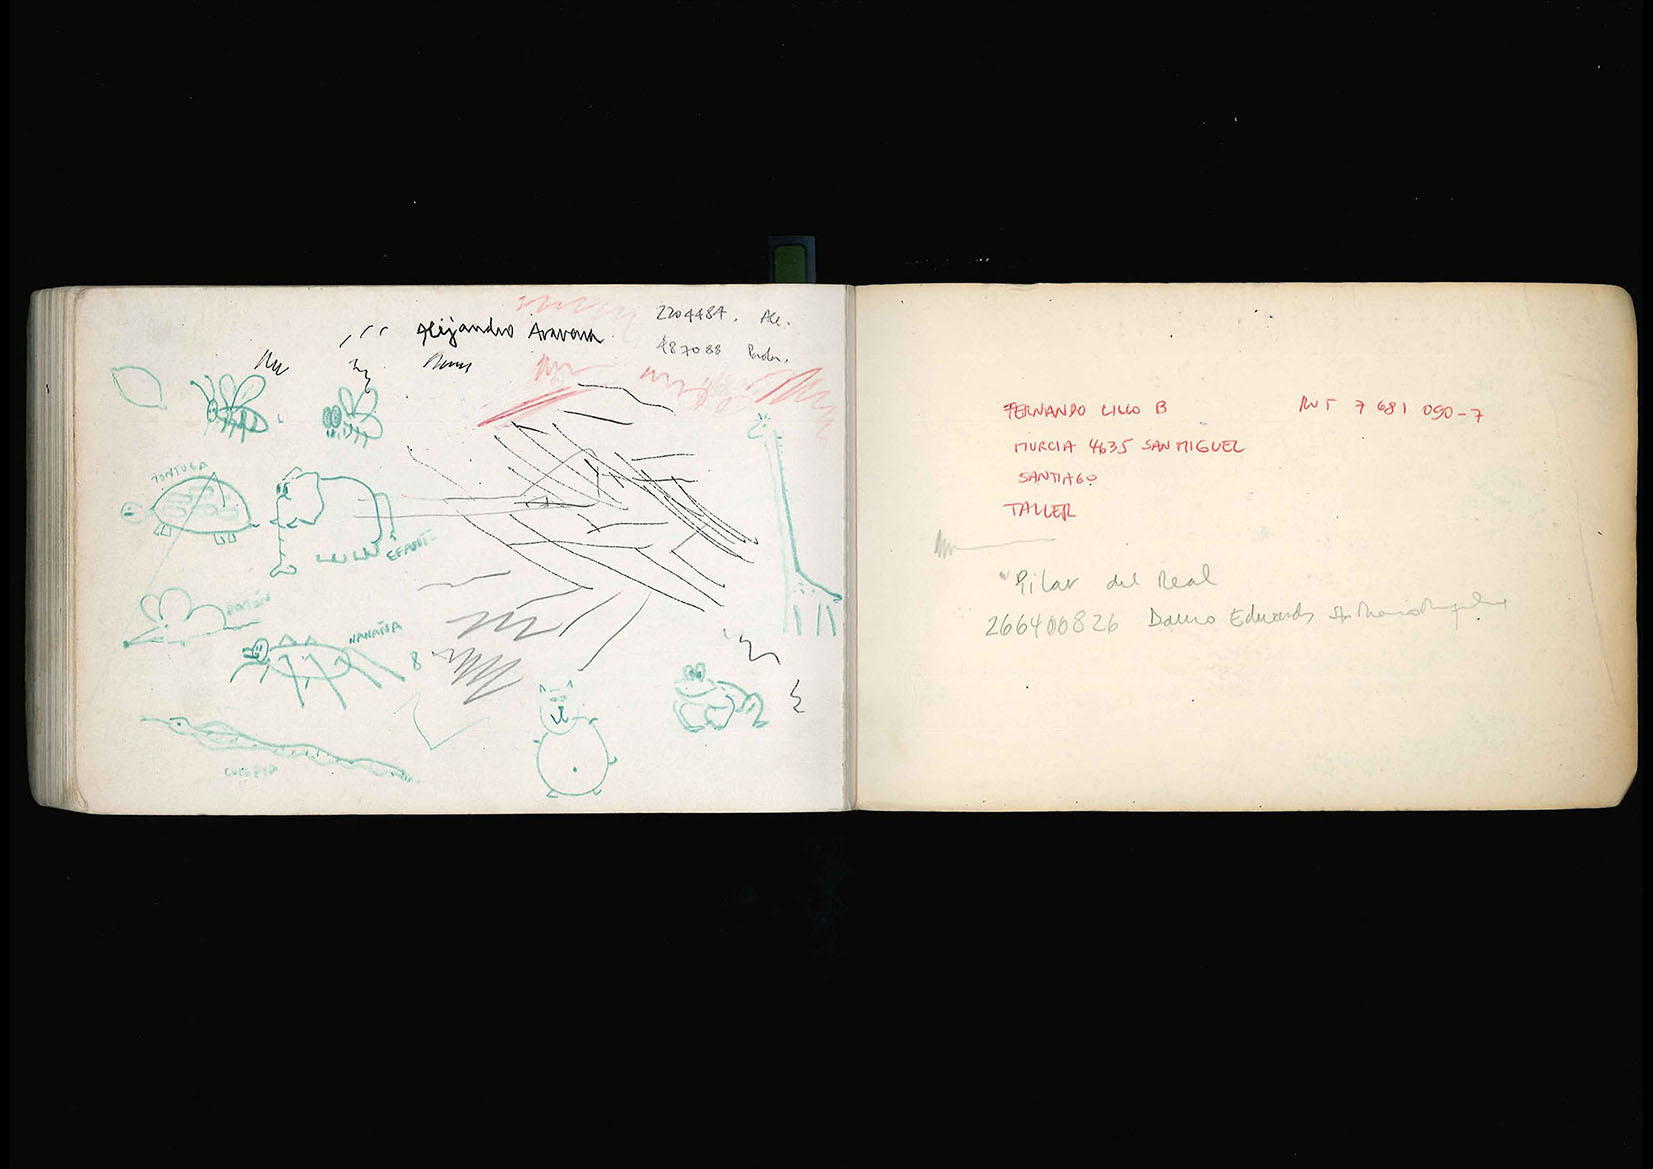 Alejandro Aravena
2204484. Ale.
487088
TORTUGA
LULÚ
EFANTE
RATÓN
ÑAÑAÑA
8
CULEBRA
FERNANDO LILLO B
RUT 7 681 090-7
MURCIA 4635 SAN MIGUEL
SANTIAGO
TALLER
"Pilar del Real
266400826 Dauno Edwards